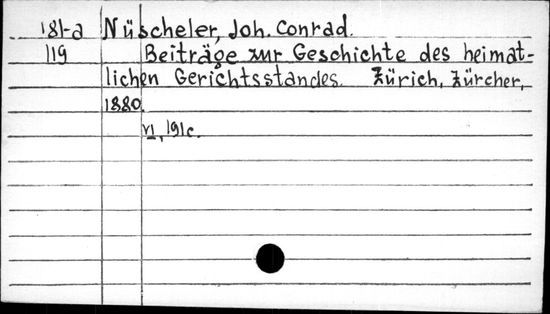 181-a Nüscheler, Joh. Conrad.
119 Beiträge zur Geschichte des heimat-
lichen Gerichtsstandes. Zürich, Zürcher,
1880.
VI, 191 c.